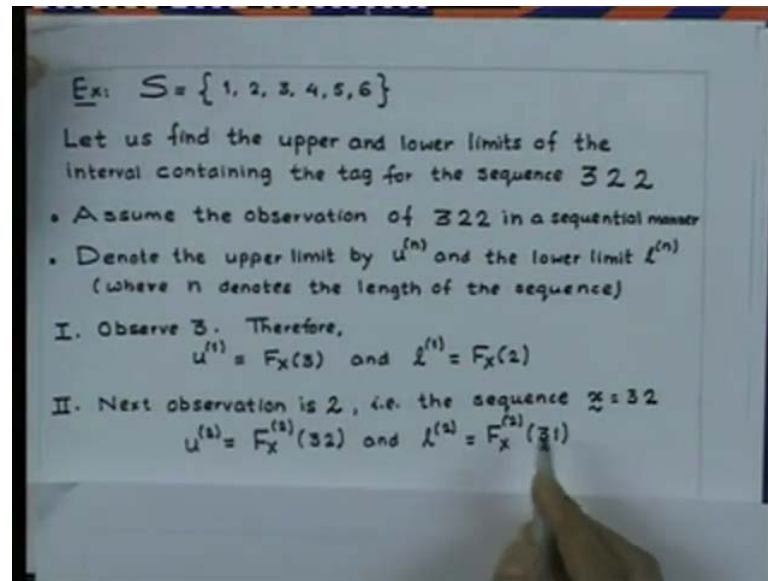 Ex: S = { 1, 2, 3, 4, 5, 6 }
Let us find the upper and lower limits of the
interval containing the tag for the sequence 3 2 2
• Assume the observation of 322 in a sequential manner
• Denote the upper limit by u⁽ⁿ⁾ and the lower limit l⁽ⁿ⁾
(where n denotes the length of the sequence)
I. Observe 3. Therefore,
u⁽¹⁾ = F_X(3) and l⁽¹⁾ = F_X(2)
II. Next observation is 2, i.e. the sequence x = 32
u⁽²⁾ = F_X⁽²⁾(32) and l⁽²⁾ = F_X⁽²⁾(31)